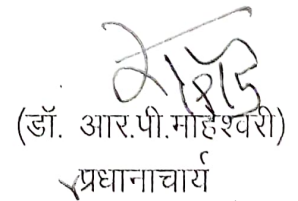 (डॉ. आर.पी.माहेश्वरी)
प्रधानाचार्य